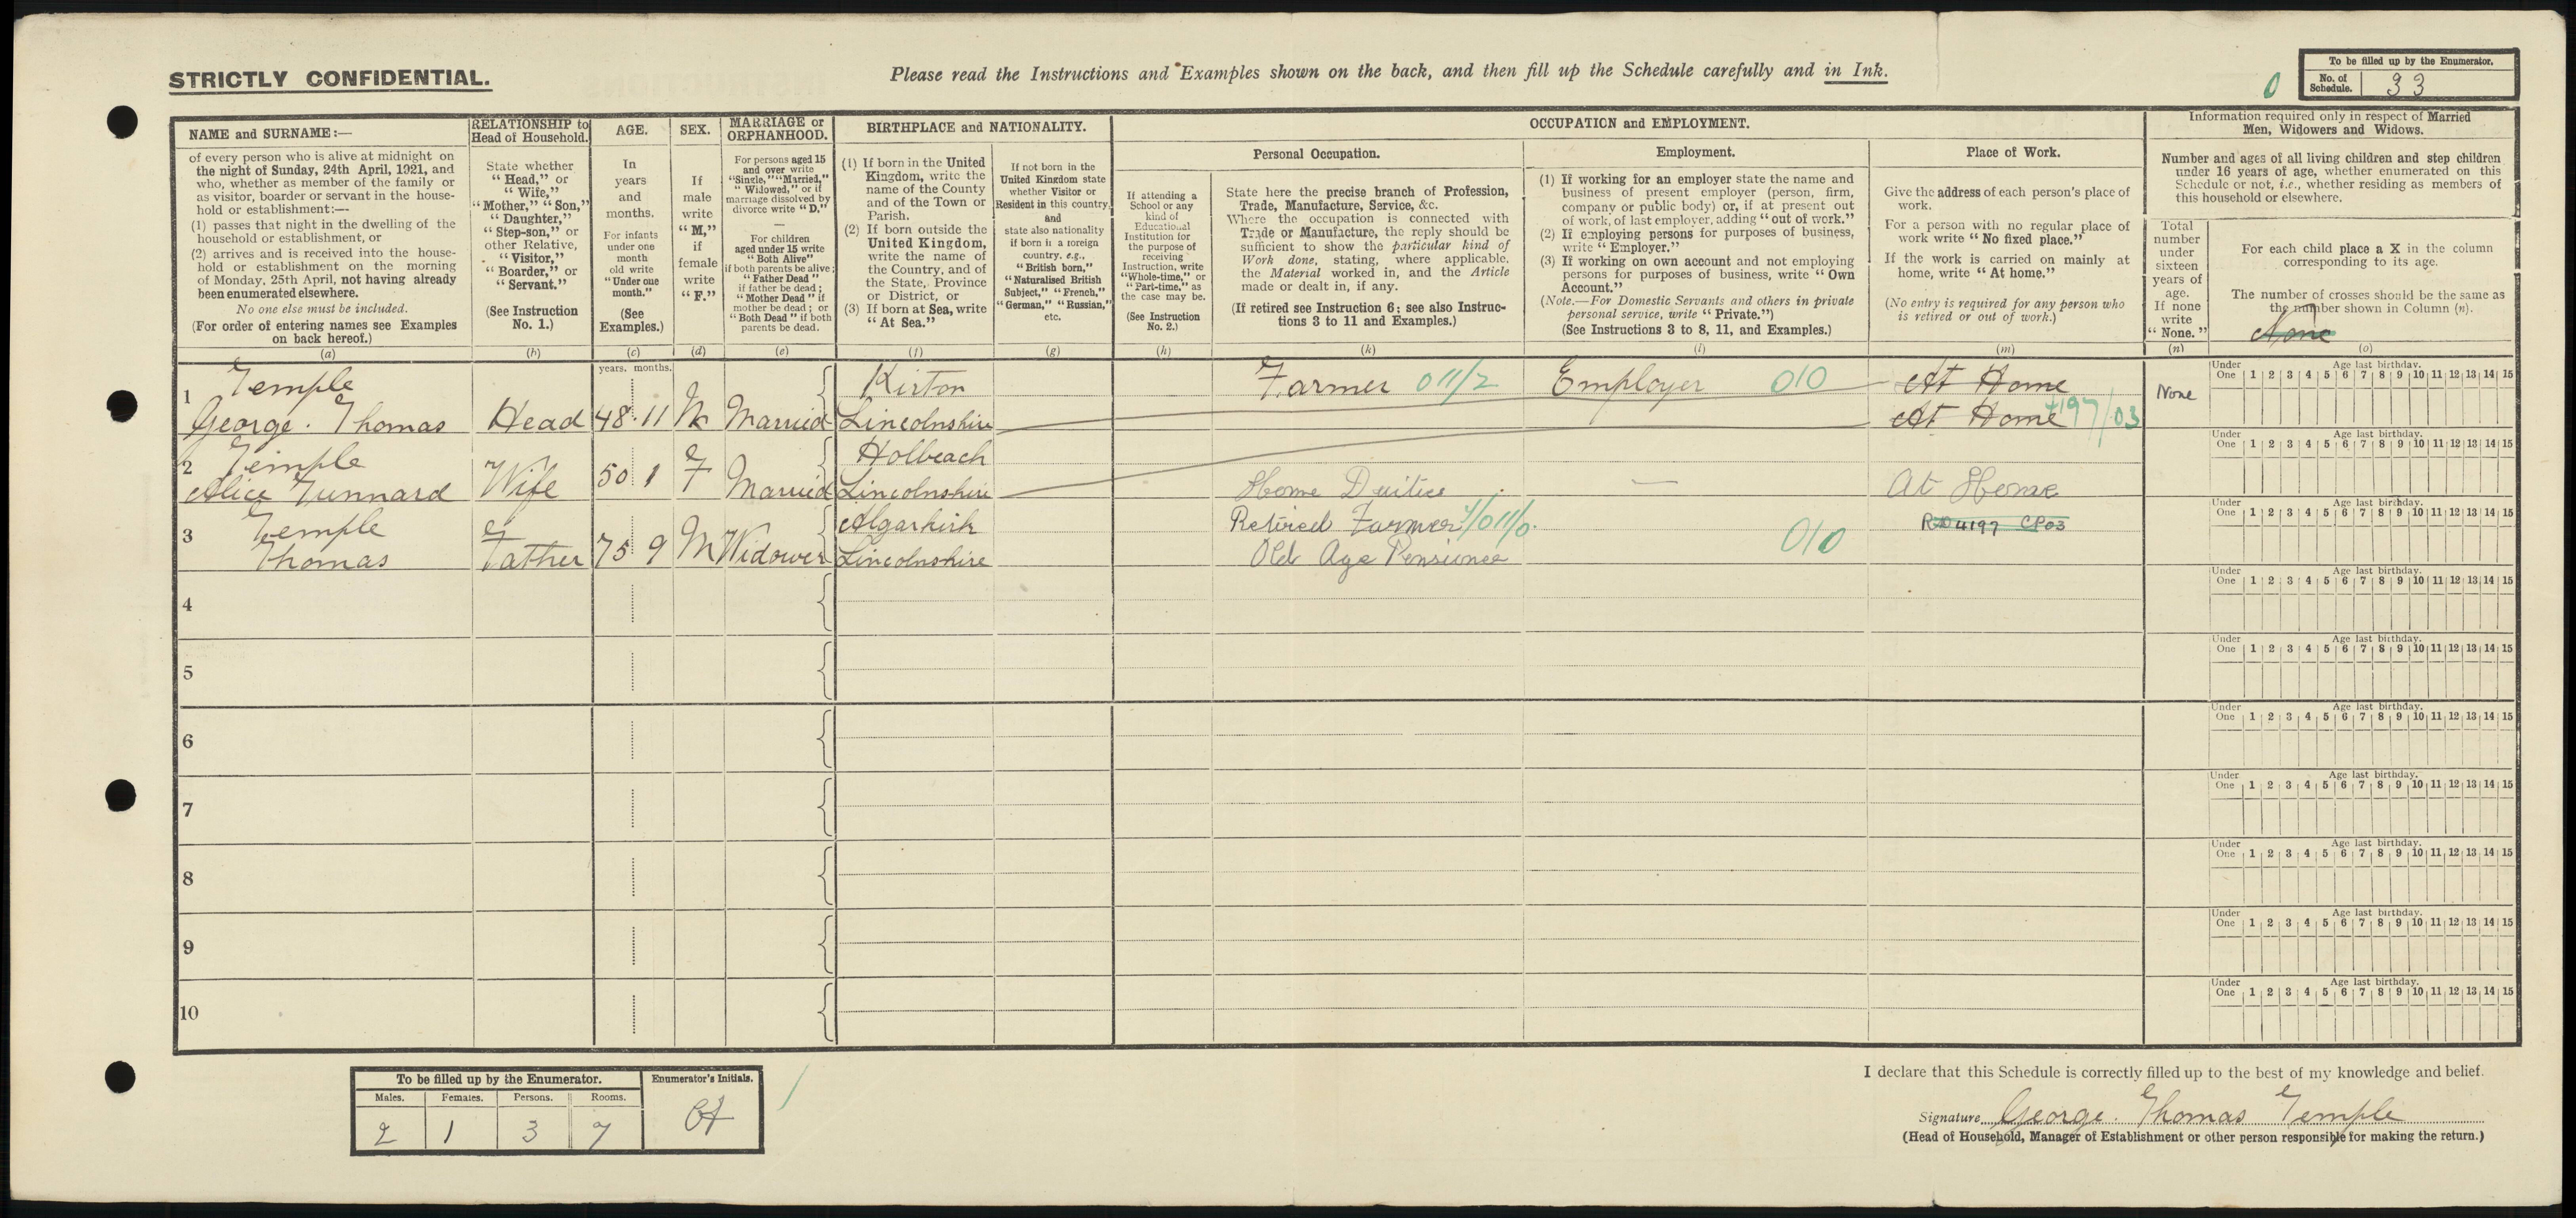 STRICTLY CONFIDENTIAL.
Please read the Instructions and Examples shown on the back, and then fill up the Schedule carefully and in Ink.
0
To be filled up by the Enumerator.
No. of Schedule. 33
NAME and SURNAME:—
of every person who is alive at midnight on
the night of Sunday, 24th April, 1921, and
who, whether as member of the family or
as visitor, boarder or servant in the house-
hold or establishment:—
(1) passes that night in the dwelling of the
household or establishment, or
(2) arrives and is received into the house-
hold or establishment on the morning
of Monday, 25th April, not having already
been enumerated elsewhere.
No one else must be included.
(For order of entering names see Examples
on back hereof.)
(a)
RELATIONSHIP to
Head of Household.
State whether
"Head," or
"Wife,"
"Mother," "Son,"
"Daughter,"
"Step-son," or
other Relative,
"Visitor,"
"Boarder," or
"Servant."
(See Instruction
No. 1.)
(b)
AGE.
In
years
and
months.
For infants
under one
month
old write
"Under one
month."
(See
Examples.)
(c)
SEX.
If
male
write
"M,"
if
female
write
"F."
(d)
MARRIAGE or
ORPHANHOOD.
For persons aged 15
and over write
"Single," "Married,"
"Widowed," or if
marriage dissolved by
divorce write "D."
—
For children
aged under 15 write
"Both Alive"
if both parents be alive;
"Father Dead"
if father be dead;
"Mother Dead" if
mother be dead; or
"Both Dead" if both
parents be dead.
(e)
BIRTHPLACE and NATIONALITY.
(1) If born in the United
Kingdom, write the
name of the County
and of the Town or
Parish.
(2) If born outside the
United Kingdom,
write the name of
the Country, and of
the State, Province
or District, or
(3) If born at Sea, write
"At Sea."
(f)
If not born in the
United Kingdom state
whether Visitor or
Resident in this country,
and
state also nationality
if born in a foreign
country, e.g.,
"British born,"
"Naturalised British
Subject," "French,"
"German," "Russian,"
etc.
(g)
OCCUPATION and EMPLOYMENT.
If attending a
School or any
kind of
Educational
Institution for
the purpose of
receiving
Instruction, write
"Whole-time," or
"Part-time," as
the case may be.
(See Instruction
No. 2.)
(h)
Personal Occupation.
State here the precise branch of Profession,
Trade, Manufacture, Service, &c.
Where the occupation is connected with
Trade or Manufacture, the reply should be
sufficient to show the particular kind of
Work done, stating, where applicable,
the Material worked in, and the Article
made or dealt in, if any.
(If retired see Instruction 6: see also Instruc-
tions 3 to 11 and Examples.)
(k)
Employment.
(1) If working for an employer state the name and
business of present employer (person, firm,
company or public body) or, if at present out
of work, of last employer, adding "out of work."
(2) If employing persons for purposes of business,
write "Employer."
(3) If working on own account and not employing
persons for purposes of business, write "Own
Account."
(Note.—For Domestic Servants and others in private
personal service, write "Private.")
(See Instructions 3 to 8, 11, and Examples.)
(l)
Place of Work.
Give the address of each person's place of
work.
For a person with no regular place of
work write "No fixed place."
If the work is carried on mainly at
home, write "At home."
(No entry is required for any person who
is retired or out of work.)
(m)
Information required only in respect of Married
Men, Widowers and Widows.
Number and ages of all living children and step children
under 16 years of age, whether enumerated on this
Schedule or not, i.e., whether residing as members of
this household or elsewhere.
Total
number
under
sixteen
years of
age.
If none
write
"None."
(n)
For each child place a X in the column
corresponding to its age.
The number of crosses should be the same as
the number shown in Column (n).
None
(o)
years. months.
1 Temple Kirton Farmer 011/2 Employer 010 At Home None
George. Thomas Head 48. 11 M Married Lincolnshire At Home 4197/03
Under One Age last birthday. 1 2 3 4 5 6 7 8 9 10 11 12 13 14 15
2 Temple Holbeach
Alice Tunnard Wife 50 1 F Married Lincolnshire Home Duties — At Home
Under One Age last birthday. 1 2 3 4 5 6 7 8 9 10 11 12 13 14 15
3 Temple Algarkirk Retired Farmer 4/011/0. RD 4197 CP03
Thomas Father 75 9 M Widower Lincolnshire Old Age Pensioner 010
Under One Age last birthday. 1 2 3 4 5 6 7 8 9 10 11 12 13 14 15
4
Under One Age last birthday. 1 2 3 4 5 6 7 8 9 10 11 12 13 14 15
5
Under One Age last birthday. 1 2 3 4 5 6 7 8 9 10 11 12 13 14 15
6
Under One Age last birthday. 1 2 3 4 5 6 7 8 9 10 11 12 13 14 15
7
Under One Age last birthday. 1 2 3 4 5 6 7 8 9 10 11 12 13 14 15
8
Under One Age last birthday. 1 2 3 4 5 6 7 8 9 10 11 12 13 14 15
9
Under One Age last birthday. 1 2 3 4 5 6 7 8 9 10 11 12 13 14 15
10
Under One Age last birthday. 1 2 3 4 5 6 7 8 9 10 11 12 13 14 15
To be filled up by the Enumerator.
Males. Females. Persons. Rooms.
2 1 3 7
Enumerator's Initials.
I declare that this Schedule is correctly filled up to the best of my knowledge and belief.
Signature George. Thomas Temple
(Head of Household, Manager of Establishment or other person responsible for making the return.)